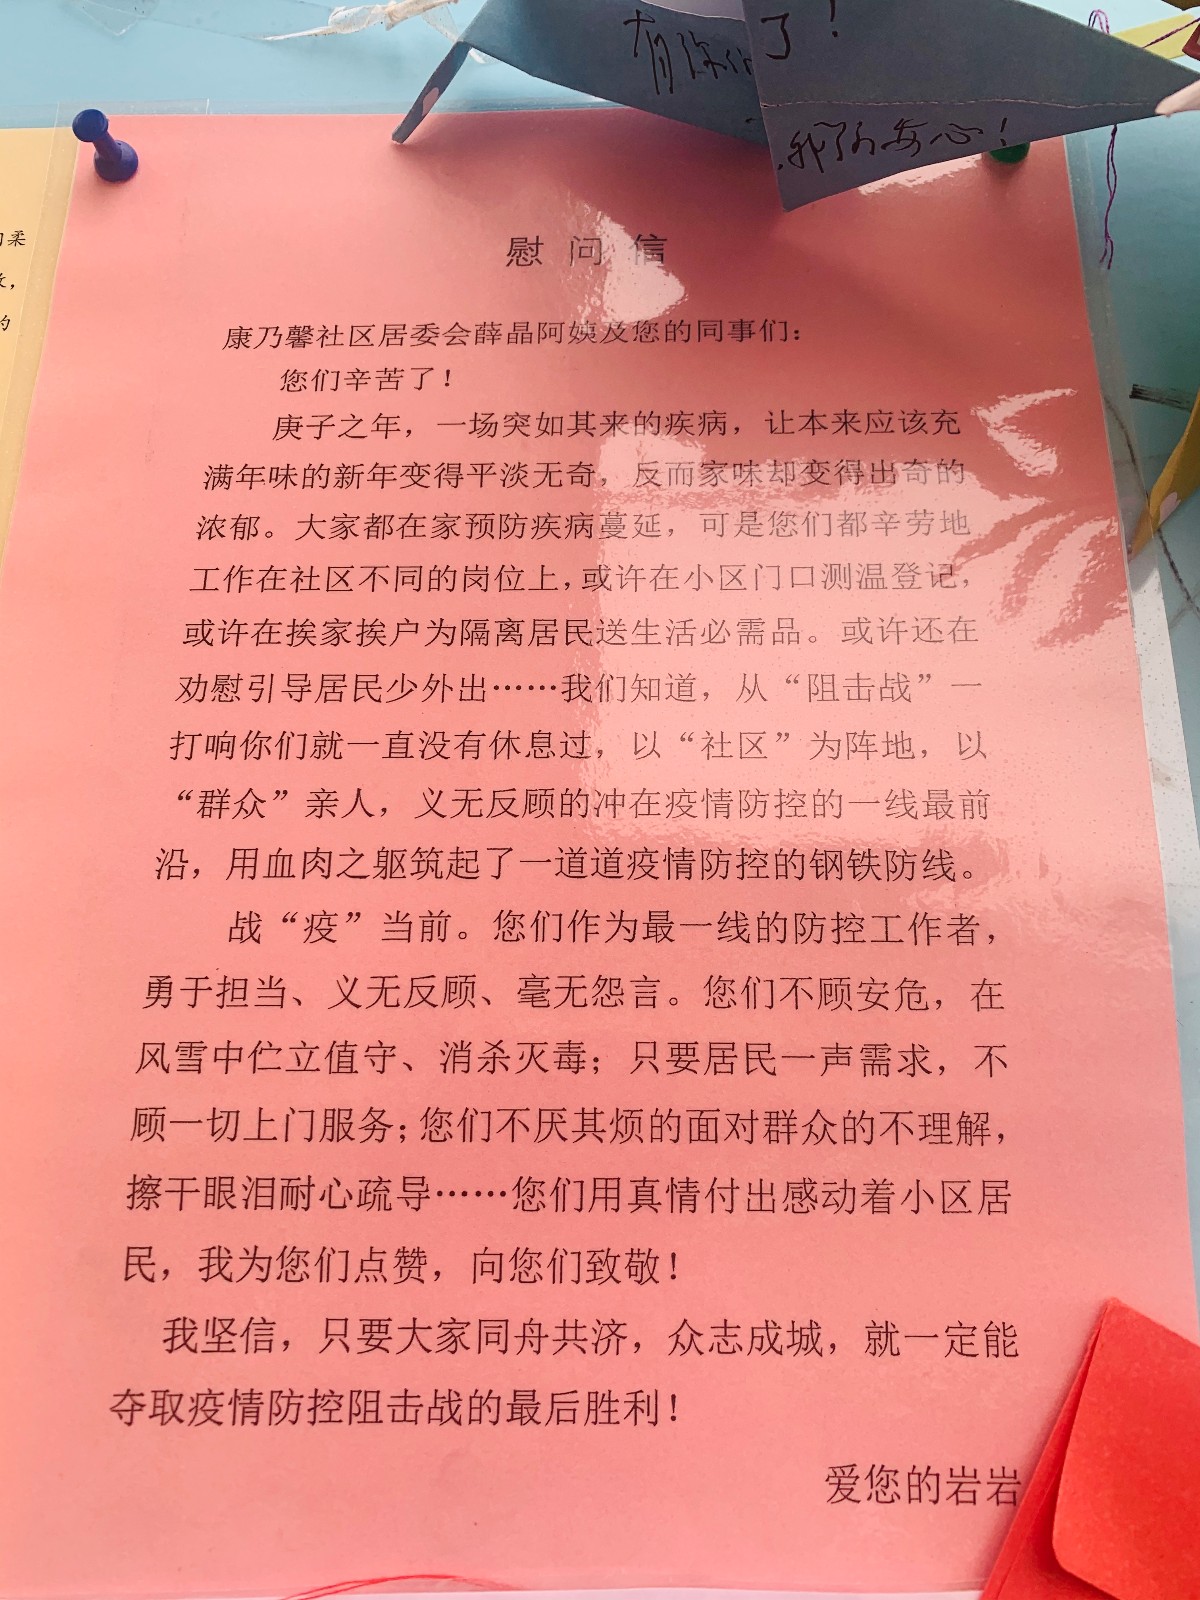 有你们
了！
我们安心！
柔
，
的
慰问信
康乃馨社区居委会薛晶阿姨及您的同事们：
您们辛苦了！
庚子之年，一场突如其来的疾病，让本来应该充
满年味的新年变得平淡无奇，反而家味却变得出奇的
浓郁。大家都在家预防疾病蔓延，可是您们都辛劳地
工作在社区不同的岗位上，或许在小区门口测温登记，
或许在挨家挨户为隔离居民送生活必需品。或许还在
劝慰引导居民少外出……我们知道，从“阻击战”一
打响你们就一直没有休息过，以“社区”为阵地，以
“群众”亲人，义无反顾的冲在疫情防控的一线最前
沿，用血肉之躯筑起了一道道疫情防控的钢铁防线。
战“疫”当前。您们作为最一线的防控工作者，
勇于担当、义无反顾、毫无怨言。您们不顾安危，在
风雪中伫立值守、消杀灭毒；只要居民一声需求，不
顾一切上门服务；您们不厌其烦的面对群众的不理解，
擦干眼泪耐心疏导……您们用真情付出感动着小区居
民，我为您们点赞，向您们致敬！
我坚信，只要大家同舟共济，众志成城，就一定能
夺取疫情防控阻击战的最后胜利！
爱您的岩岩